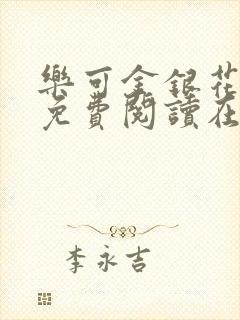 樂可金銀花
免費閱讀在
李永吉